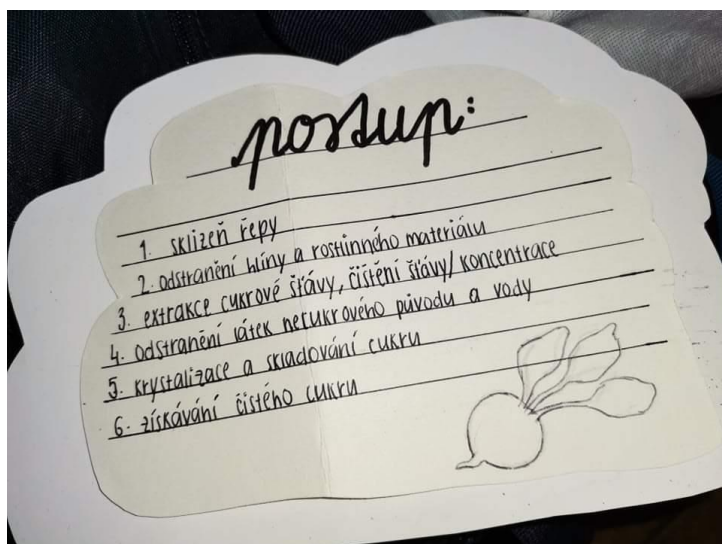 postup:
1. sklizeň řepy
2. odstranění hlíny a rostlinného materiálu
3. extrakce cukrové šťávy, čištění šťávy/koncentrace
4. odstranění látek necukrového původu a vody
5. krystalizace a skladování cukru
6. získávání čistého cukru